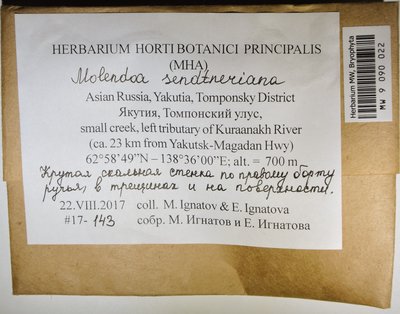 HERBARIUM HORTI BOTANICI PRINCIPALIS
(MHA)
Molendoa sendtneriana
Asian Russia, Yakutia, Tomponsky District
Якутия, Томпонский улус,
small creek, left tributary of Kuraanakh River
(ca. 23 km from Yakutsk-Magadan Hwy)
62°58'49"N – 138°36'00"E; alt. = 700 m
Крутая скальная стенка по правому борту
ручья, в трещинах и на поверхности.
22.VIII.2017 coll. M. Ignatov & E. Ignatova
#17- 143 собр. М. Игнатов и Е. Игнатова
Herbarium MW, Bryophyta
MW 9 090 022